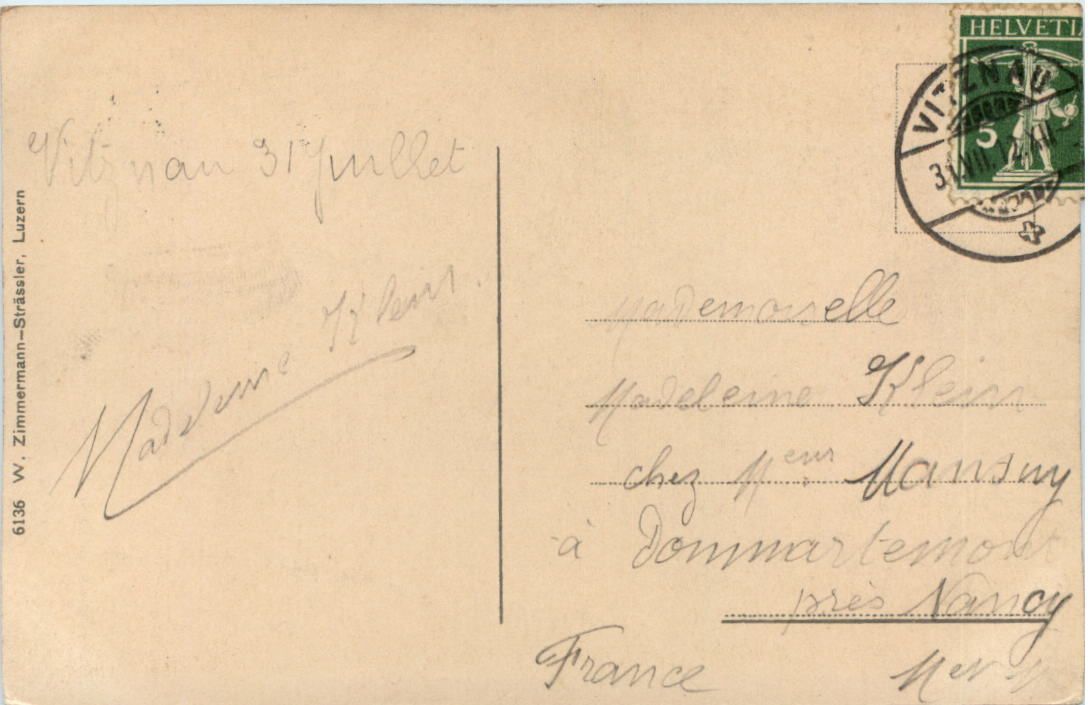 HELVETIA
VITZNAU
5
Vitznau 31 Juillet
Madeleine Klein.
6136 W. Zimmermann–Strässler, Luzern
Mademoiselle
Madeleine Klein
chez Meur Mansuy
à Dommartemont
près Nancy
France
M et M